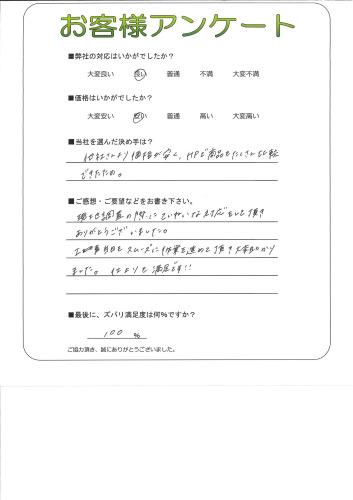 お客様アンケート
■弊社の対応はいかがでしたか？
大変良い　良い　普通　不満　大変不満
■価格はいかがでしたか？
大変安い　安い　普通　高い　大変高い
■当社を選んだ決め手は？
他社さんより価格が安く、HPで商品もたくさん比較
できたため。
■ご感想・ご要望などをお書き下さい。
現地調査の際にていねいな対応をして頂き
ありがとうございました。
工事当日もスムーズに作業を進めて頂き大変助かり
ました。仕上りも満足です!!
■最後に、ズバリ満足度は何%ですか？
100 %
ご協力頂き、誠にありがとうございました。